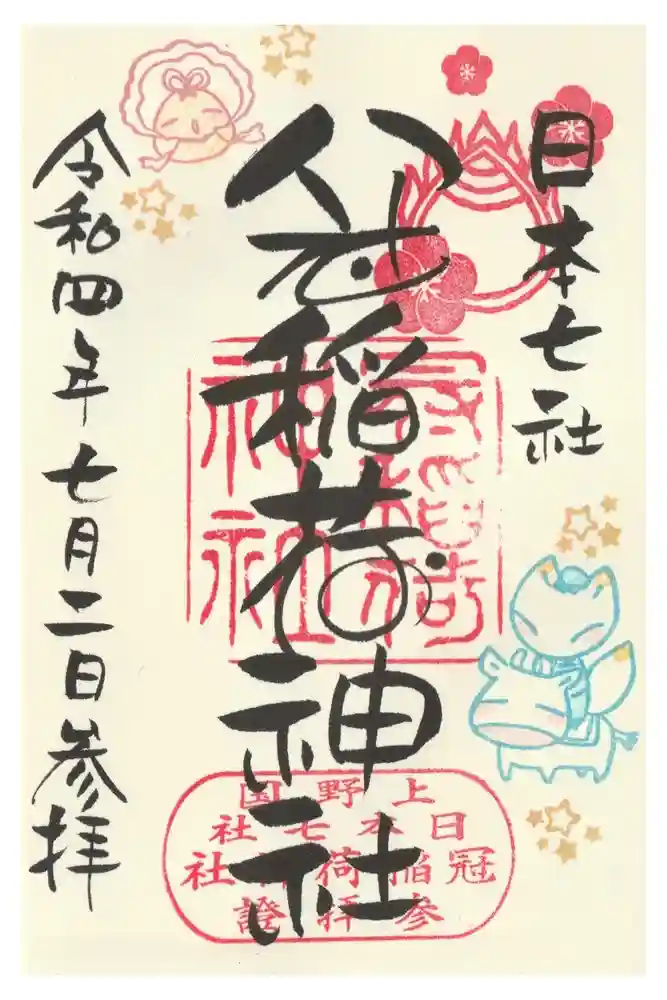 日本七社
冠稲荷神社
令和四年七月二日参拝
冠稲荷
神社
上野国
日本七社
冠稲荷神社
参拝證